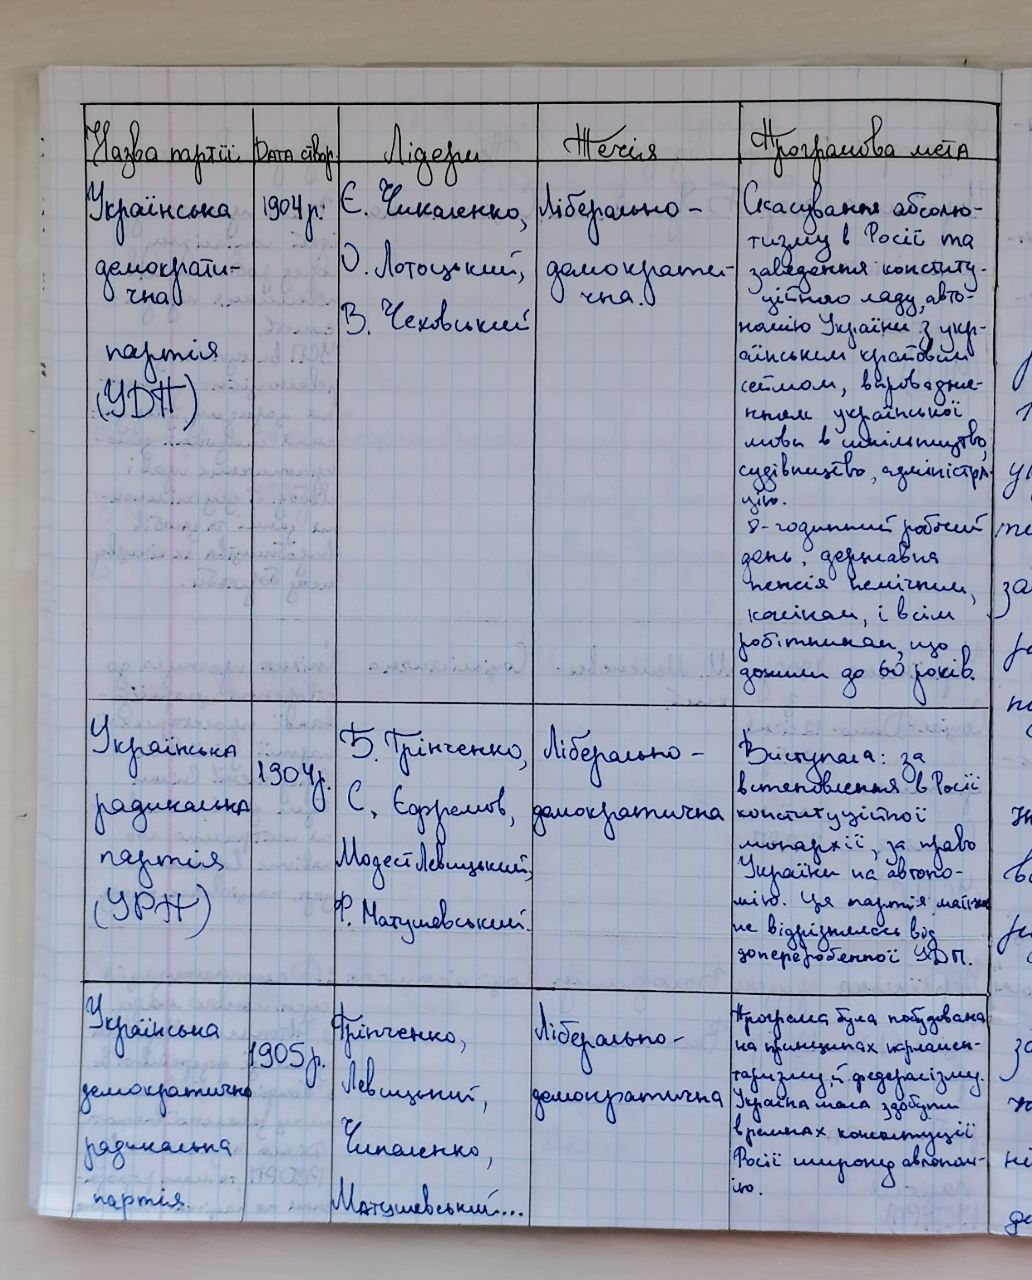 Назва партії Дата створ. Лідери Течія Програмова мета
Українська
демократи-
чна
партія
(УДП)
1904 р.
Є. Чикаленко,
О. Лотоцький,
В. Чеховський
Ліберально-
демократи-
чна.
Скасування абсолю-
тизму в Росії та
заведення консти­ту-
ційного ладу, авто-
номію України з укр-
аїнським крайовим
сеймом, впровадже-
нням української
мови в шкільництво,
судівництво, адміністра-
цію.
8-годинний робочий
день, державна
пенсія немічним,
калікам, і всім
робітникам, що
дожили до 60 років.
Українська
радикальна
партія
(УРП)
1904р.
Б. Грінченко,
С. Єфремов,
Модест Левицький,
Ф. Матушевський.
Ліберально-
демократична
Виступала: за
встановлення в Росії
конституційної
монархії, за право
України на автоно-
мію. Ця партія майже
не відрізнялась від
допереробленної УДП.
Українська
демократично
радикальна
партія
1905р.
Грінченко,
Левицький,
Чикаленко,
Матушевський...
Ліберально-
демократична
Програма була побудована
на принципах парламен-
таризму й федералізму.
Україна мала здобути
в рамках конституції
Росії широку автоном-
ію.